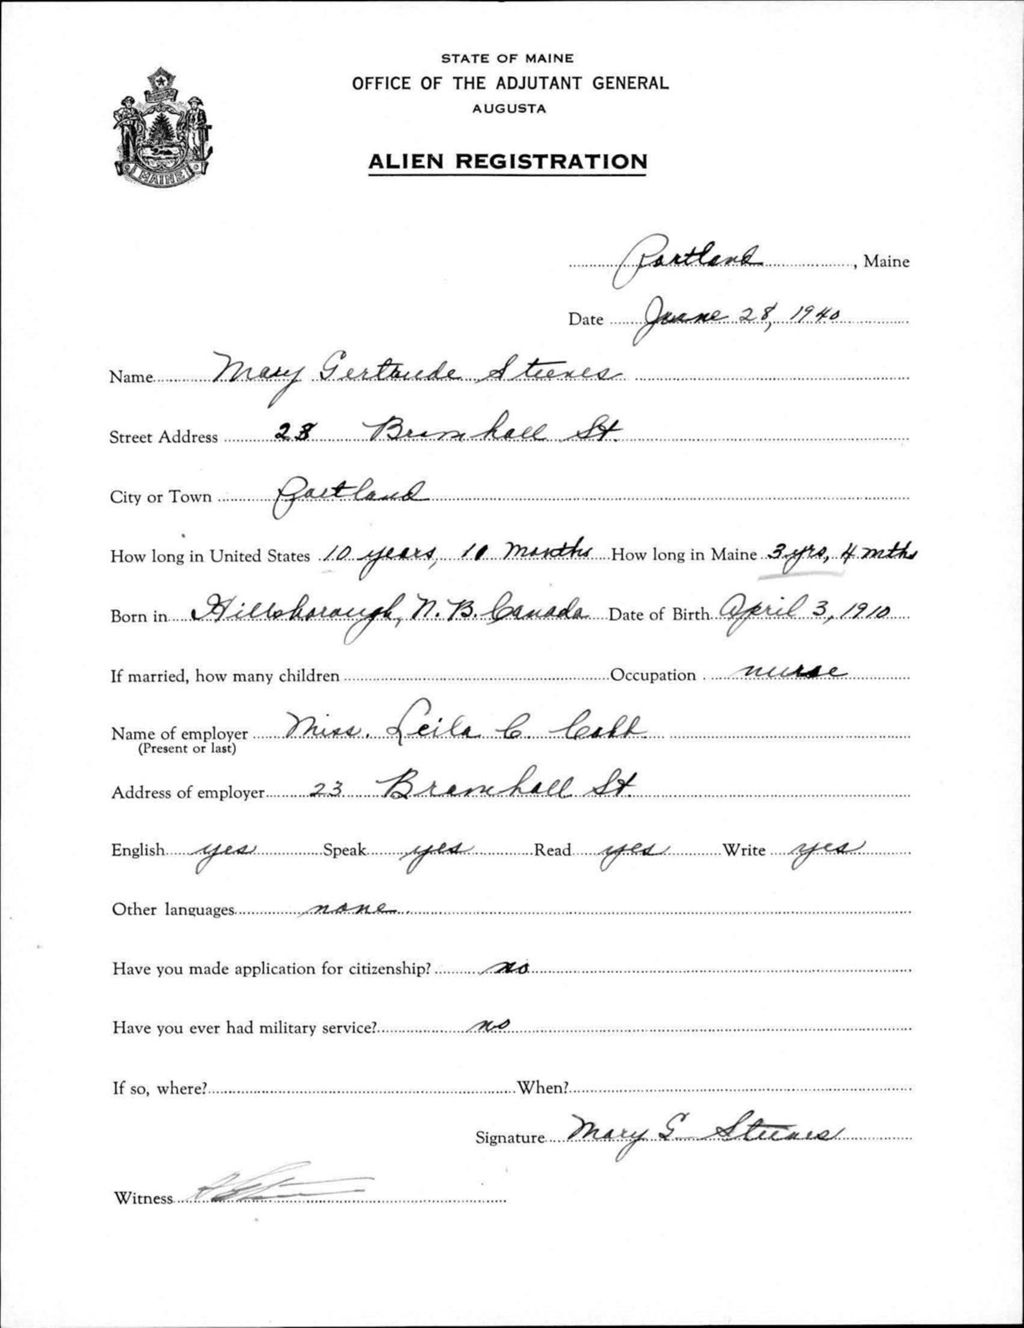 STATE OF MAINE
OFFICE OF THE ADJUTANT GENERAL
AUGUSTA
ALIEN REGISTRATION
MAINE
Portland, Maine
Date June 28, 1940
Name Mary Gertrude Steeves
Street Address 23 Bramhall St.
City or Town Portland
How long in United States 10 years, 10 months How long in Maine 3 yrs, 4 mths
Born in Hillsborough, N.B. Canada Date of Birth April 3, 1910
If married, how many children Occupation nurse
Name of employer Miss. Leila C. Cobb
(Present or last)
Address of employer 23 Bramhall St.
English yes Speak yes Read yes Write yes
Other languages none
Have you made application for citizenship? no
Have you ever had military service? no
If so, where? When?
Signature Mary G. Steeves
Witness